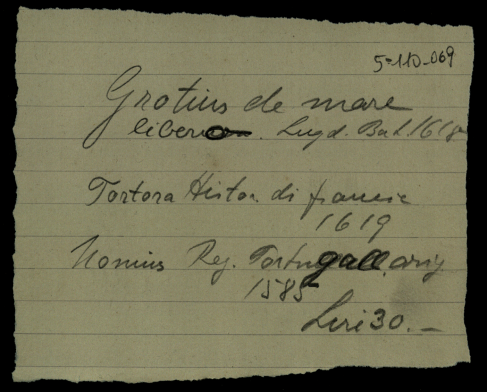 5-110-069
Grotius de mare
libero. Lugd. Bat. 1618
Tortora Histor. di francia
1619
Nonius Reg. Portugall.
1585
Lire 30.-